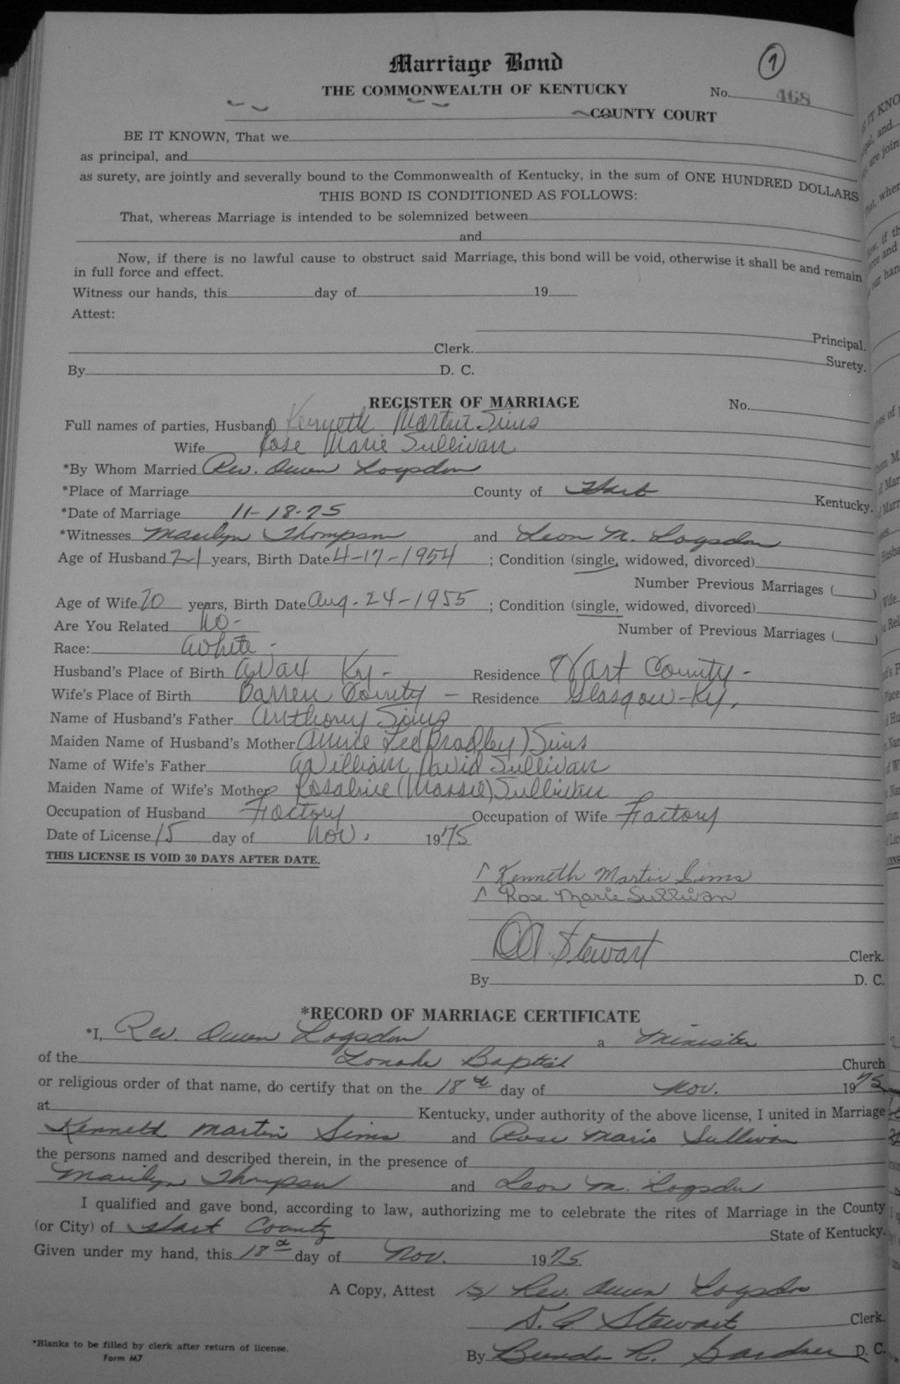 1
Marriage Bond
THE COMMONWEALTH OF KENTUCKY
No. 468
COUNTY COURT
BE IT KNOWN, That we
as principal, and
as surety, are jointly and severally bound to the Commonwealth of Kentucky, in the sum of ONE HUNDRED DOLLARS
THIS BOND IS CONDITIONED AS FOLLOWS:
That, whereas Marriage is intended to be solemnized between
and
Now, if there is no lawful cause to obstruct said Marriage, this bond will be void, otherwise it shall be and remain
in full force and effect.
Witness our hands, this day of 19
Attest:
Principal.
Clerk.
Surety.
By D. C.
REGISTER OF MARRIAGE No.
Full names of parties, Husband) Kenneth Martin Sims
Wife Rose Marie Sullivan
*By Whom Married Rev. Owen Logsdon
*Place of Marriage County of Hart Kentucky.
*Date of Marriage 11-18-75
*Witnesses Marilyn Thompson and Leon M. Logsdon
Age of Husband 21 years, Birth Date 4-17-1954 ; Condition (single, widowed, divorced)
Number Previous Marriages ( )
Age of Wife 20 years, Birth Date Aug-24-1955 ; Condition (single, widowed, divorced)
Are You Related No- Number of Previous Marriages ( )
Race: White -
Husband's Place of Birth Ky - Residence Hart County -
Wife's Place of Birth Barren County - Residence Glasgow-Ky,
Name of Husband's Father Anthony Sims
Maiden Name of Husband's Mother Lee (Bradley) Sims
Name of Wife's Father William David Sullivan
Maiden Name of Wife's Mother (Massie) Sullivan
Occupation of Husband Factory Occupation of Wife Factory
Date of License 15 day of Nov. 1975
THIS LICENSE IS VOID 30 DAYS AFTER DATE.
Kenneth Martin Sims
Rose Marie Sullivan
Stewart Clerk.
By D. C.
*RECORD OF MARRIAGE CERTIFICATE
*I, Rev. Owen Logsdon a Minister
of the Baptist Church
or religious order of that name, do certify that on the 18th day of Nov. 1975
at Kentucky, under authority of the above license, I united in Marriage
Kenneth Martin Sims and Rose Marie Sullivan
the persons named and described therein, in the presence of
Marilyn Thompson and Leon M. Logsdon
I qualified and gave bond, according to law, authorizing me to celebrate the rites of Marriage in the County
(or City) of Hart County State of Kentucky.
Given under my hand, this 18th day of Nov. 1975
A Copy, Attest Rev. Owen Logsdon
Stewart Clerk.
*Blanks to be filled by clerk after return of license.
Form M7
By R. Gardner D. C.